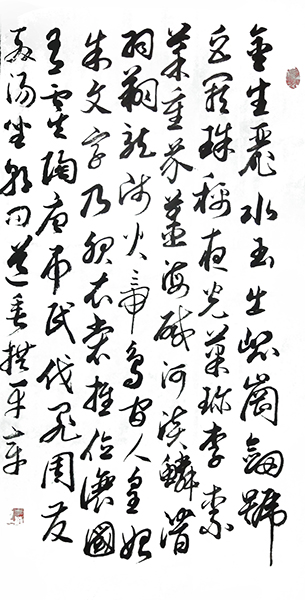 金生麗水玉出崐崗劒號
巨闕珠稱夜光菓珍李柰
菜重芥薑海鹹河淡鱗潛
羽翔龍師火帝鳥官人皇始
制文字乃服衣裳推位讓國
有虞陶唐弔民伐罪周發
商湯坐朝問道垂拱平章